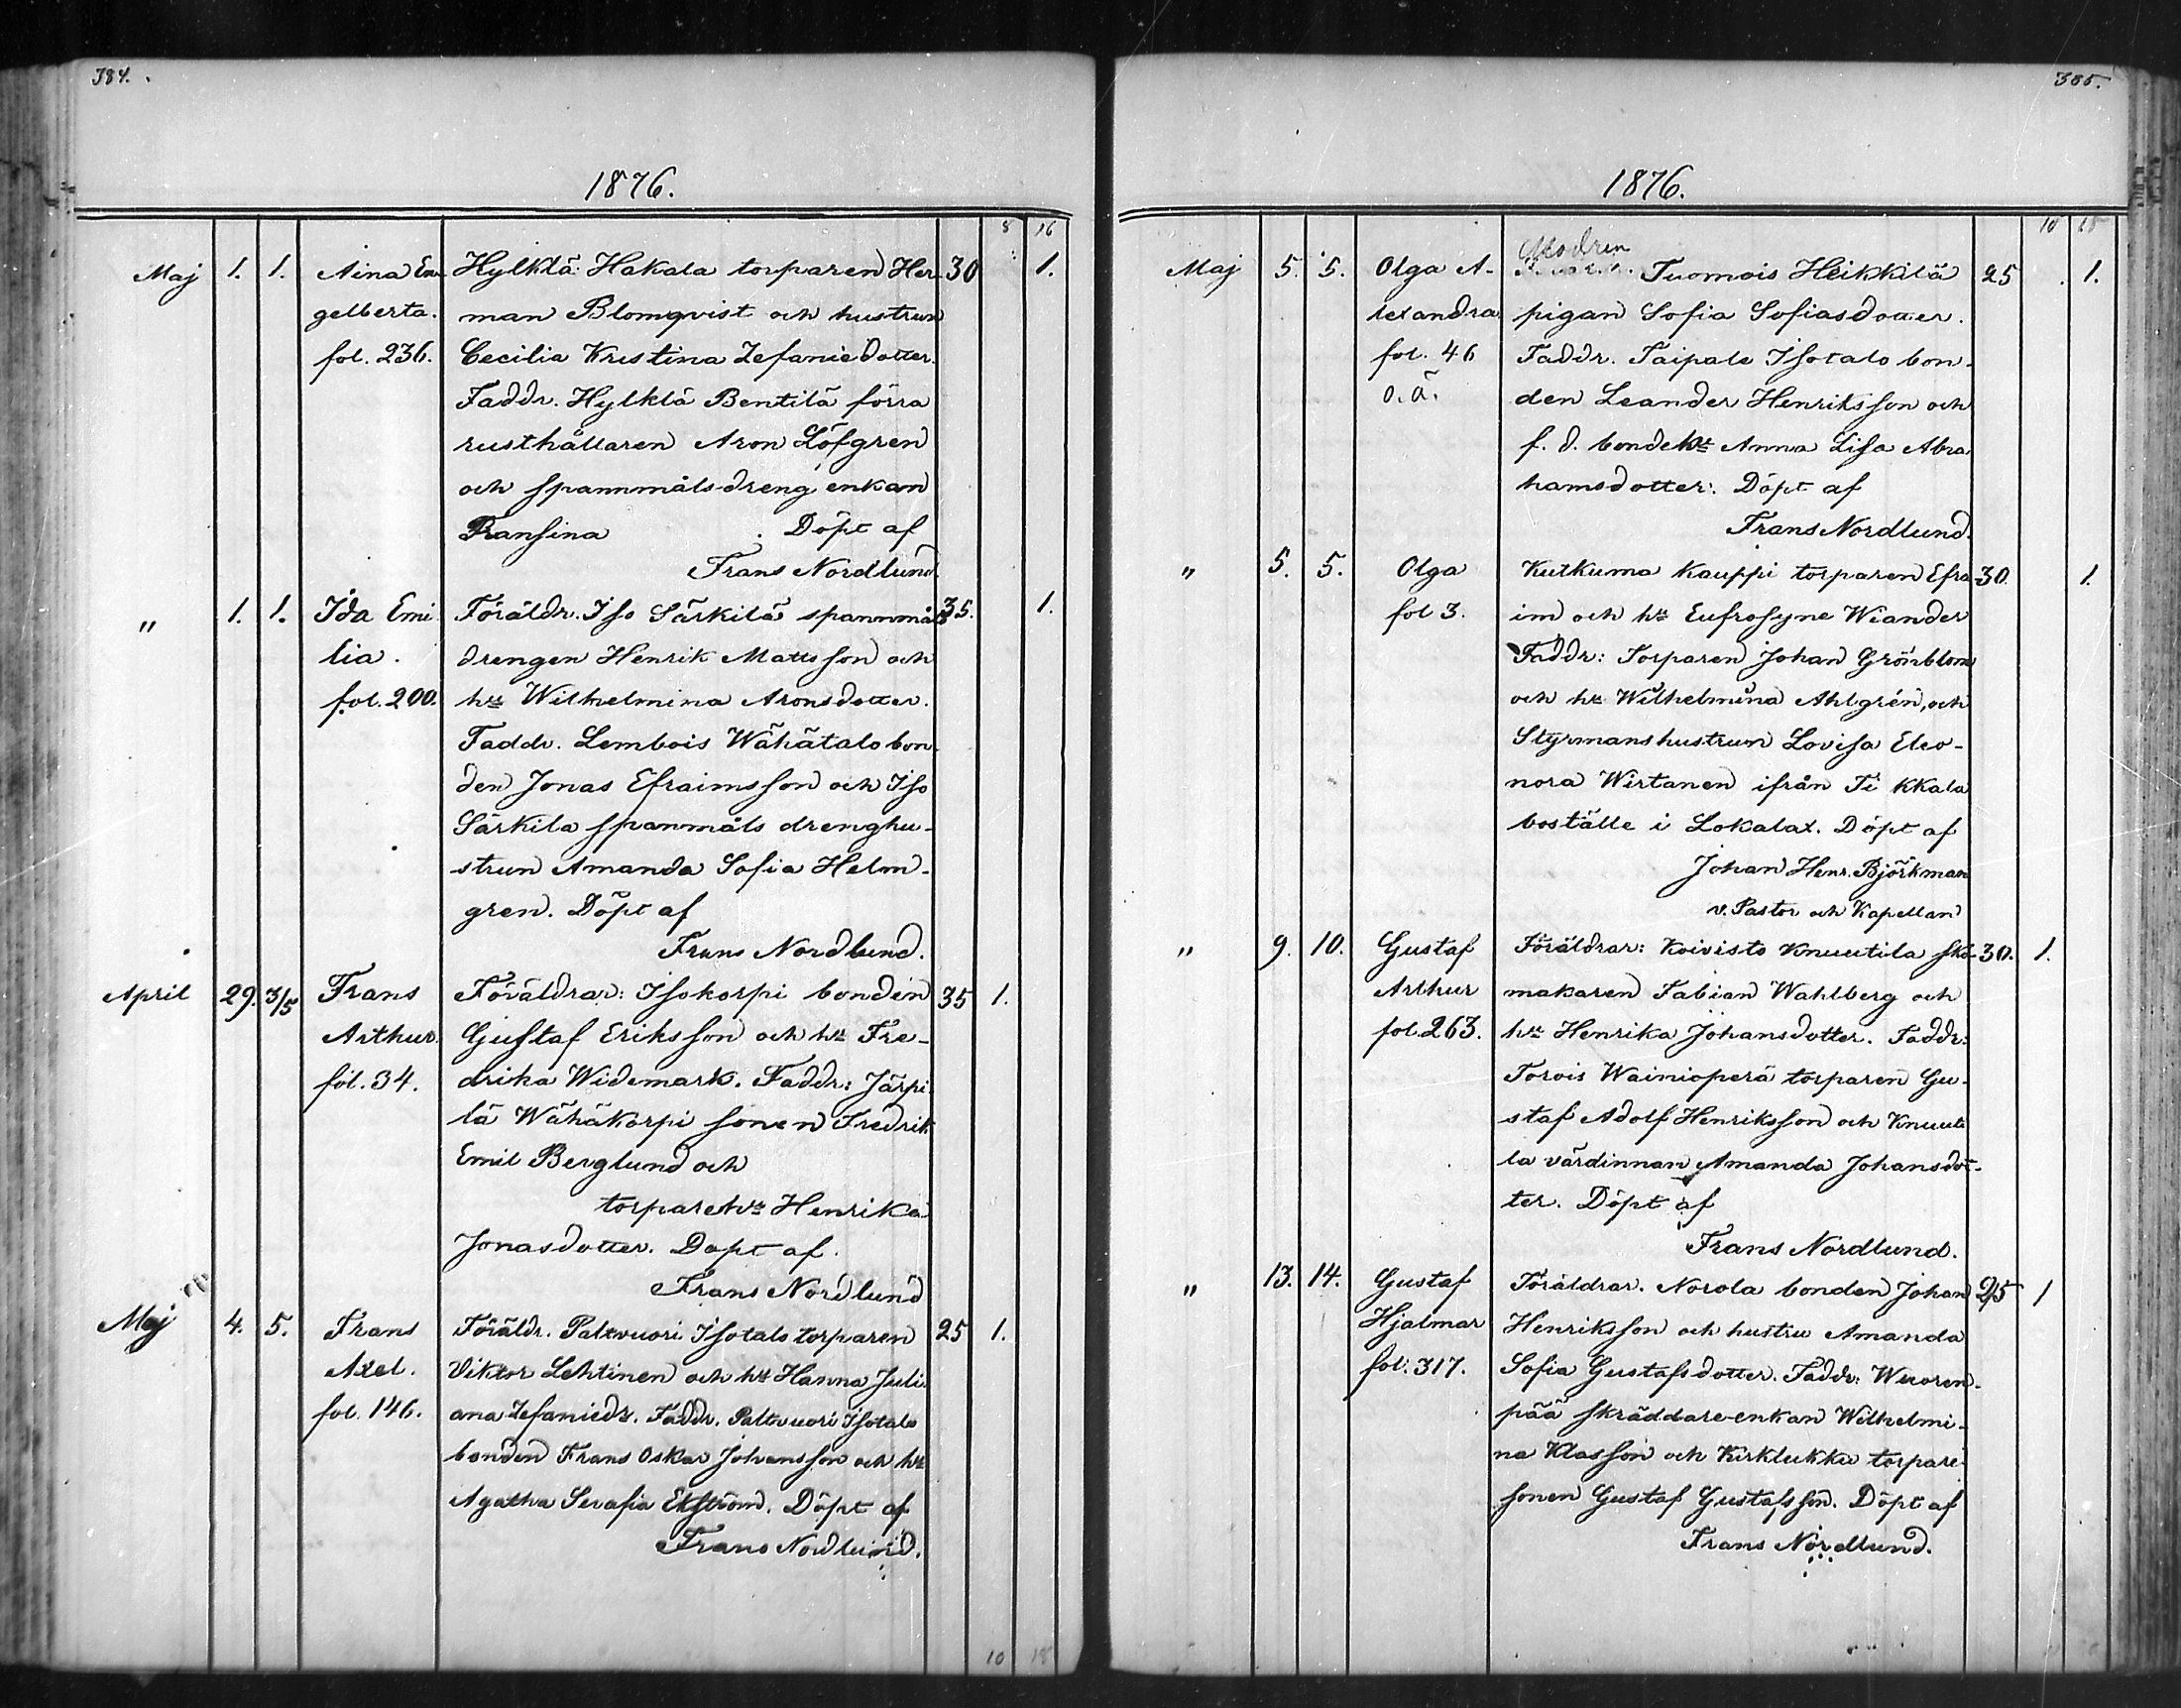 384.
1876.
8 16
Maj 1. 1. Aina En- Hylklä Hakala torparen Her- 30 1.
gelberta. man Blomqvist och hustrun
fol. 236. Cecilia Kristina Zefaniedotter.
Faddr. Hylklä Bentilä förra
rusthållaren Aron Löfgren
och spannmåls-dreng enkan
Fransina . Döpt af
Frans Nordlund.
" 1. 1. Ida Emi Föräldr. Iso Särkilä spannmåls 35. 1.
lia. drengen Henrik Mattsson och
fol. 200. hu Wilhelmina Aronsdotter.
Faddr. Lembois Wähätalo bon-
den Jonas Efraimsson och Iso
Särkila spanmåls drenghu-
strun Amanda Sofia Helm-
gren. Döpt af
Frans Nordlund.
April 29. 3/5 Frans Föräldrar: Isokorpi bonden 35 1.
Arthur. Gustaf Eriksson och hu Fre-
fol. 34. drika Widemark. Faddr: Järpi-
lä Wähäkorpi sonen Fredrik
Emil Berglund och
torparehu Henrika
Jonasdotter. Döpt af
Frans Nordlund
Maj 4. 5. Frans Föräldr. Paltvuori Isotalo torparen 25 1.
Axel. Viktor Lehtinen och hu Hanna Juli
fol. 146. ana Zefaniedr. Faddr. Paltvuori Isotalo
bonden Frans Oskar Johansson och hu
Agatha Serafia Ekström. Döpt af
Frans Nordlund.
10 18
385.
1876.
10 18
Modren
Maj 5. 5. Olga A- Tuomois Heikkilä 25 1.
lexandra pigan Sofia Sofiasdotter.
fol. 46 Faddr. Taipale Isotalo bon-
o. ä. den Leander Henriksson och
f. d. bondehu Anna Lisa Abra
hamsdotter. Döpt af
Frans Nordlund.
" 5. 5. Olga Kutkuma Kauppi torparen Efra- 30. 1.
fol 3. im och hu Eufrosyne Wiander
Faddr: Torparen Johan Grönblom
och hu Wilhelmina Ahlgrén, och
Styrmanshustrun Lovisa Eleo-
nora Wirtanen ifrån Tikkala
boställe i Lokalax. Döpt af
Johan Henr. Björkman
v. Pastor och Kapellan
" 9. 10. Gustaf Föräldrar: Koivisto Knuutila sko- 30. 1.
Arthur makaren Fabian Wahlberg och
fol. 263. hu Henrika Johansdotter. Faddr:
Torois Wainioperä torparen Gu-
staf Adolf Henriksson och Knuuti
la värdinnan Amanda Johansdot-
ter. Döpt af
Frans Nordlund.
" 13. 14. Gustaf Föräldrar. Norola bonden Johan 25 1
Hjalmar Henriksson och hustru Amanda
fol. 317. Sofia Gustafsdotter. Faddr: Wuoren-
pää skräddare-enkan Wilhelmi-
na Klasson och Kirklukka torpare
sonen Gustaf Gustafsson. Döpt af
Frans Nordlund.